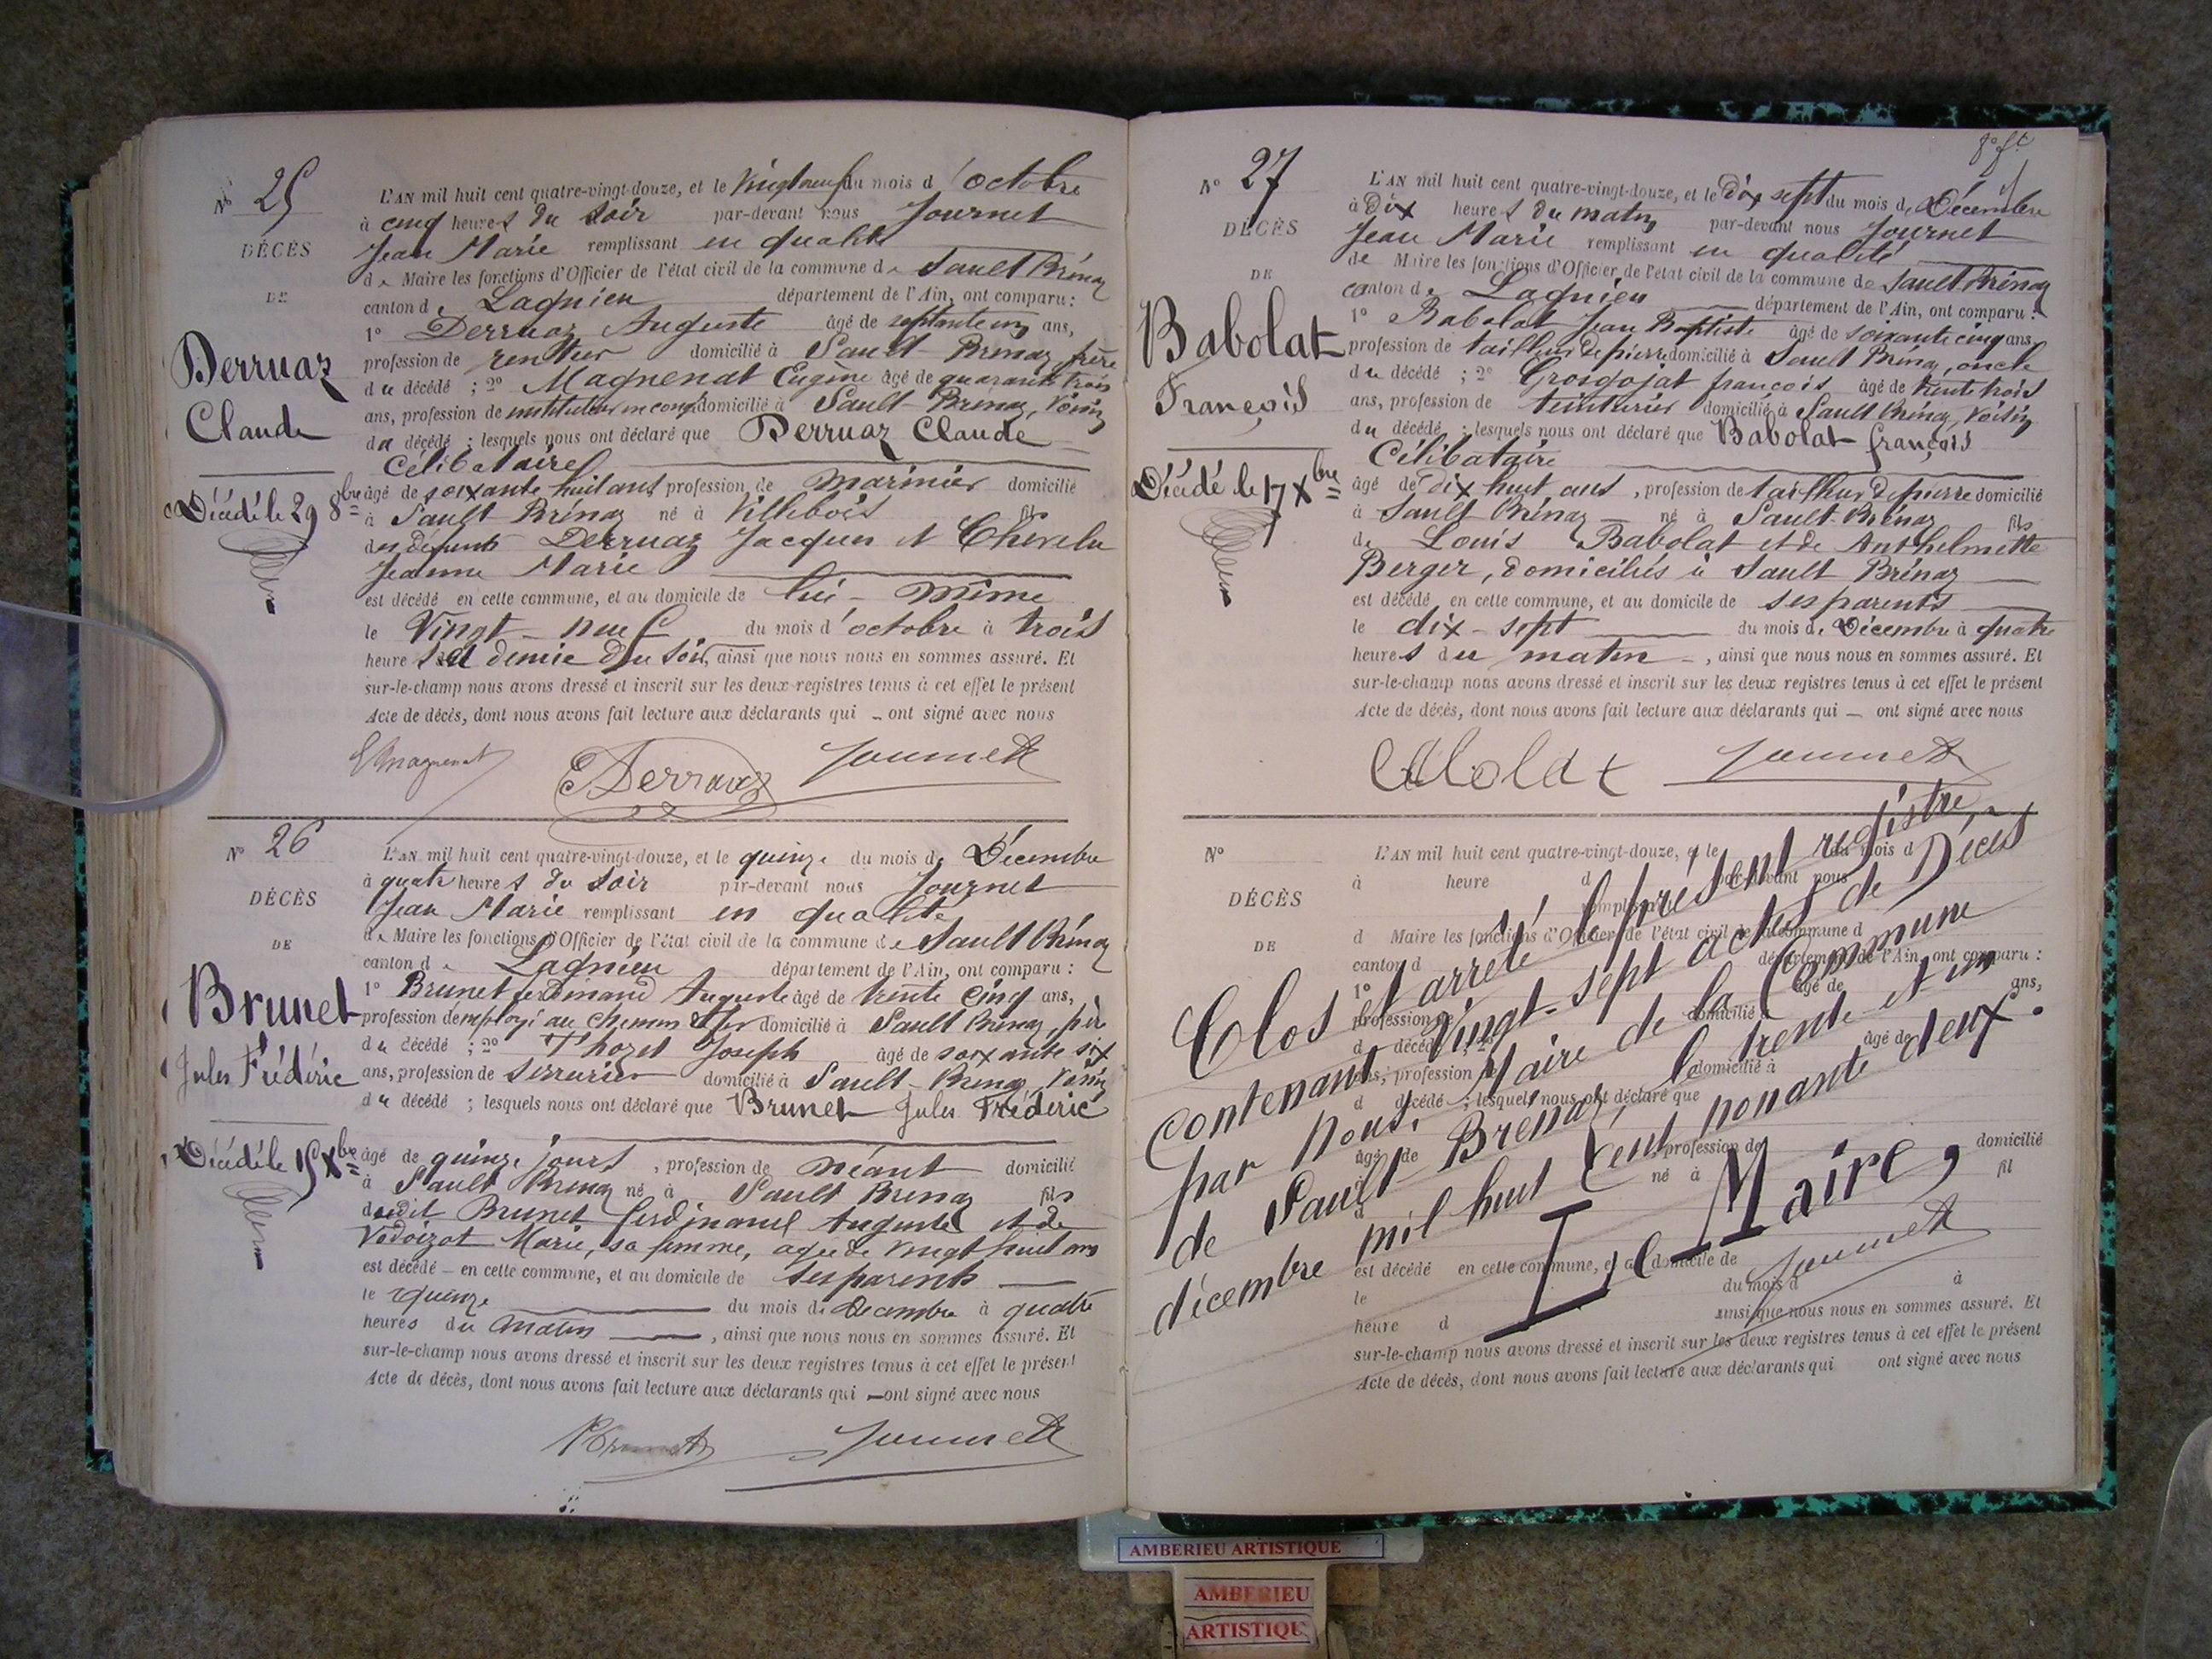 N° 25
DÉCÈS
DE
Derruaz
Claude
Décédé le 29 8bre
L'AN mil huit cent quatre-vingt-douze, et le Vingt neuf du mois d'octobre
à cinq heures du soir par-devant nous Journet
Jean Marie remplissant en qualité
de Maire les fonctions d'Officier de l'état civil de la commune de Sault Brénaz
canton de Lagnieu département de l'Ain, ont comparu :
1° Derruaz Auguste âgé de septante un ans,
profession de rentier domicilié à Sault-Brénaz, frère
du décédé ; 2° Magnenat Eugène âgé de quarante trois
ans, profession de instituteur en congé domicilié à Sault-Brénaz, Voisin
du décédé ; lesquels nous ont déclaré que Derruaz Claude
Célibataire
âgé de soixante huit ans, profession de marinier domicilié
à Sault-Brénaz né à Villebois fils
des défunts Derruaz Jacques et Chevelu
Jeanne Marie
est décédé en cette commune, et au domicile de lui-même
le Vingt-neuf du mois d'octobre à trois
heures et demie du soir, ainsi que nous nous en sommes assuré. Et
sur-le-champ nous avons dressé et inscrit sur les deux registres tenus à cet effet le présent
Acte de décès, dont nous avons fait lecture aux déclarants qui ont signé avec nous
EMagnenat Derruaz Journet
N° 26
DÉCÈS
DE
Brunet
Jules Frédéric
Décédé le 15 Xbre
L'AN mil huit cent quatre-vingt-douze, et le quinze du mois de Décembre
à quatre heures du soir par-devant nous Journet
Jean Marie remplissant en qualité
de Maire les fonctions d'Officier de l'état civil de la commune de Sault Brénaz
canton de Lagnieu département de l'Ain, ont comparu :
1° Brunet ferdinand Auguste âgé de trente cinq ans,
profession d'employé au chemin de fer domicilié à Sault Brénaz, père
du décédé ; 2° Thozet Joseph âgé de soixante six
ans, profession de serrurier domicilié à Sault-Brénaz, Voisin
du décédé ; lesquels nous ont déclaré que Brunet Jules Frédéric
âgé de quinze jours, profession de néant domicilié
à Sault Brénaz né à Sault Brénaz fils
dudit Brunet ferdinand Auguste et de
Vedoizot Marie, sa femme, agée de Vingt huit ans
est décédé en cette commune, et au domicile de ses parents
le quinze du mois de Décembre à quatre
heures du matin, ainsi que nous nous en sommes assuré. Et
sur-le-champ nous avons dressé et inscrit sur les deux registres tenus à cet effet le présent
Acte de décès, dont nous avons fait lecture aux déclarants qui ont signé avec nous
Brunet Journet
N° 27
DÉCÈS
DE
Babolat
François
Décédé le 17 Xbre
L'AN mil huit cent quatre-vingt-douze, et le Dix sept du mois de Décembre
à Dix heures du matin par-devant nous Journet
Jean Marie remplissant en qualité
de Maire les fonctions d'Officier de l'état civil de la commune de Sault Brénaz
canton de Lagnieu département de l'Ain, ont comparu :
1° Babolat Jean Baptiste âgé de soixante cinq ans,
profession de tailleur de pierre domicilié à Sault Brénaz, oncle
du décédé ; 2° Grosgojat françois âgé de trente trois
ans, profession de teinturier domicilié à Sault Brénaz, Voisin
du décédé ; lesquels nous ont déclaré que Babolat françois
Célibataire
âgé de dix huit ans, profession de tailleur de pierre domicilié
à Sault Brénaz né à Sault-Brénaz fils
de Louis Babolat et de Anthelmette
Berger, domiciliés à Sault Brénaz
est décédé en cette commune, et au domicile de ses parents
le dix-sept du mois de Décembre à quatre
heures du matin, ainsi que nous nous en sommes assuré. Et
sur-le-champ nous avons dressé et inscrit sur les deux registres tenus à cet effet le présent
Acte de décès, dont nous avons fait lecture aux déclarants qui ont signé avec nous
Babolat Journet
N°
DÉCÈS
DE
L'AN mil huit cent quatre-vingt-douze, et le du mois d
à heure d par-devant nous
remplissant
d Maire les fonctions d'Officier de l'état civil de la commune d
canton d département de l'Ain, ont comparu :
1° âgé de ans,
profession de domicilié à
d décédé ; 2° âgé de
ans, profession de domicilié à
d décédé ; lesquels nous ont déclaré que
âgé de profession de domicilié
à né à fil
d
est décédé en cette commune, et au domicile de
le du mois d à
heure d ainsi que nous nous en sommes assuré. Et
sur-le-champ nous avons dressé et inscrit sur les deux registres tenus à cet effet le présent
Acte de décès, dont nous avons fait lecture aux déclarants qui ont signé avec nous
Clos et arrêté le présent registre,
contenant Vingt-sept actes de Décès
par nous, Maire de la Commune
de Sault-Brénaz, le trente et un
décembre mil huit cent nonante deux.
Le Maire,
Journet
AMBERIEU ARTISTIQUE
AMBERIEU
ARTISTIQUE